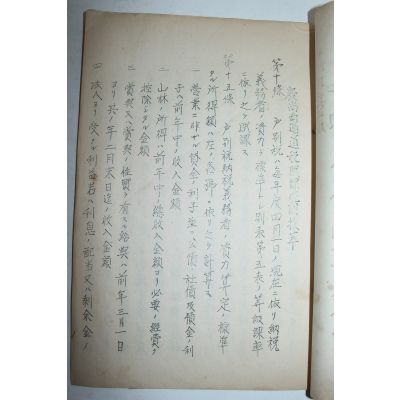 第十條 戸別税ハ毎年度四月一日ノ現在ニ依リ納税
義務者ノ資力ヲ標準トシ別表第五表ノ等級課率
ニ依リ之ヲ賦課ス
第十五條 戸別税納税義務者ノ資力算定ノ標準
タル所得額ハ左ノ各號ニ依リ之ヲ計算ス
一 營業ニ非サル貸金ノ利子並ニ公債社債及預金ノ利
子ハ前年中ノ收入金額
二 山林ノ所得ハ前年中ノ總收入金額ヨリ必要ノ經費ヲ
控除シタル金額
三 賞與又ハ賞與ノ性質ヲ有スル給與ハ前年三月一日
ヨリ其ノ年二月末日迄ノ收入金額
四 法人ヨリ受クル利益若ハ利息ノ配当又ハ剰余金ノ